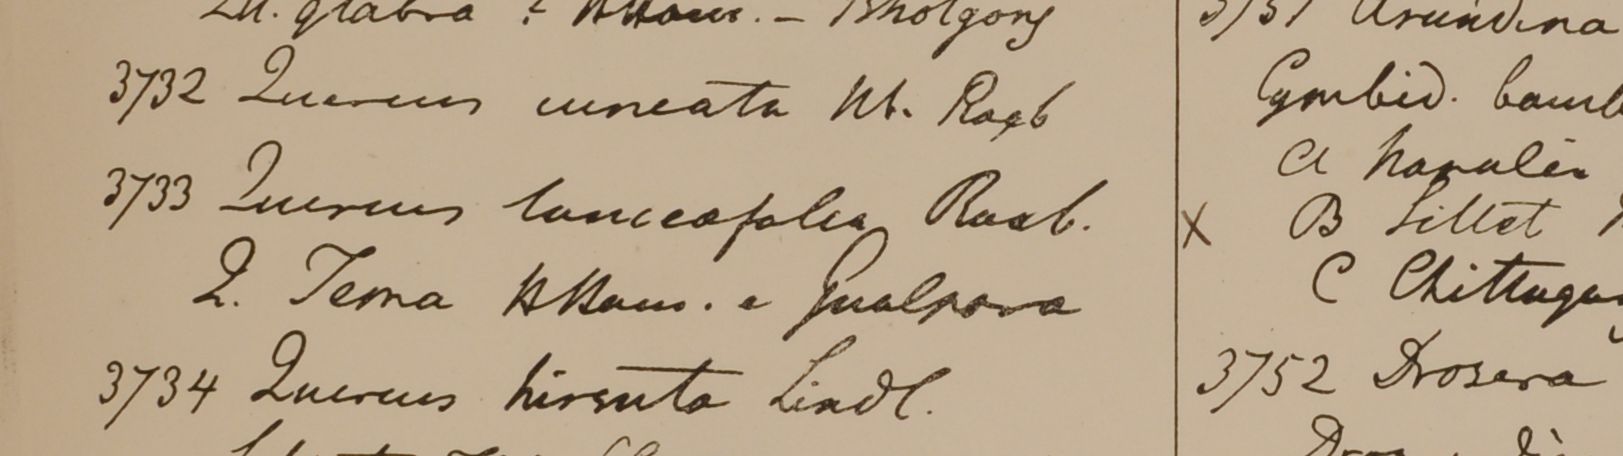 glabra ? HHam. – Bholgong
3732 Quercus cuneata hb. Roxb
3733 Quercus lanceafolia Roxb.
Q. Tema HHam. e Gualpara
3734 Quercus hirsuta Lindl.
3751 Arundina
Cymbid. bamb
a Napalia
X B Sillet
C Chittago
3752 Drosera
Dros